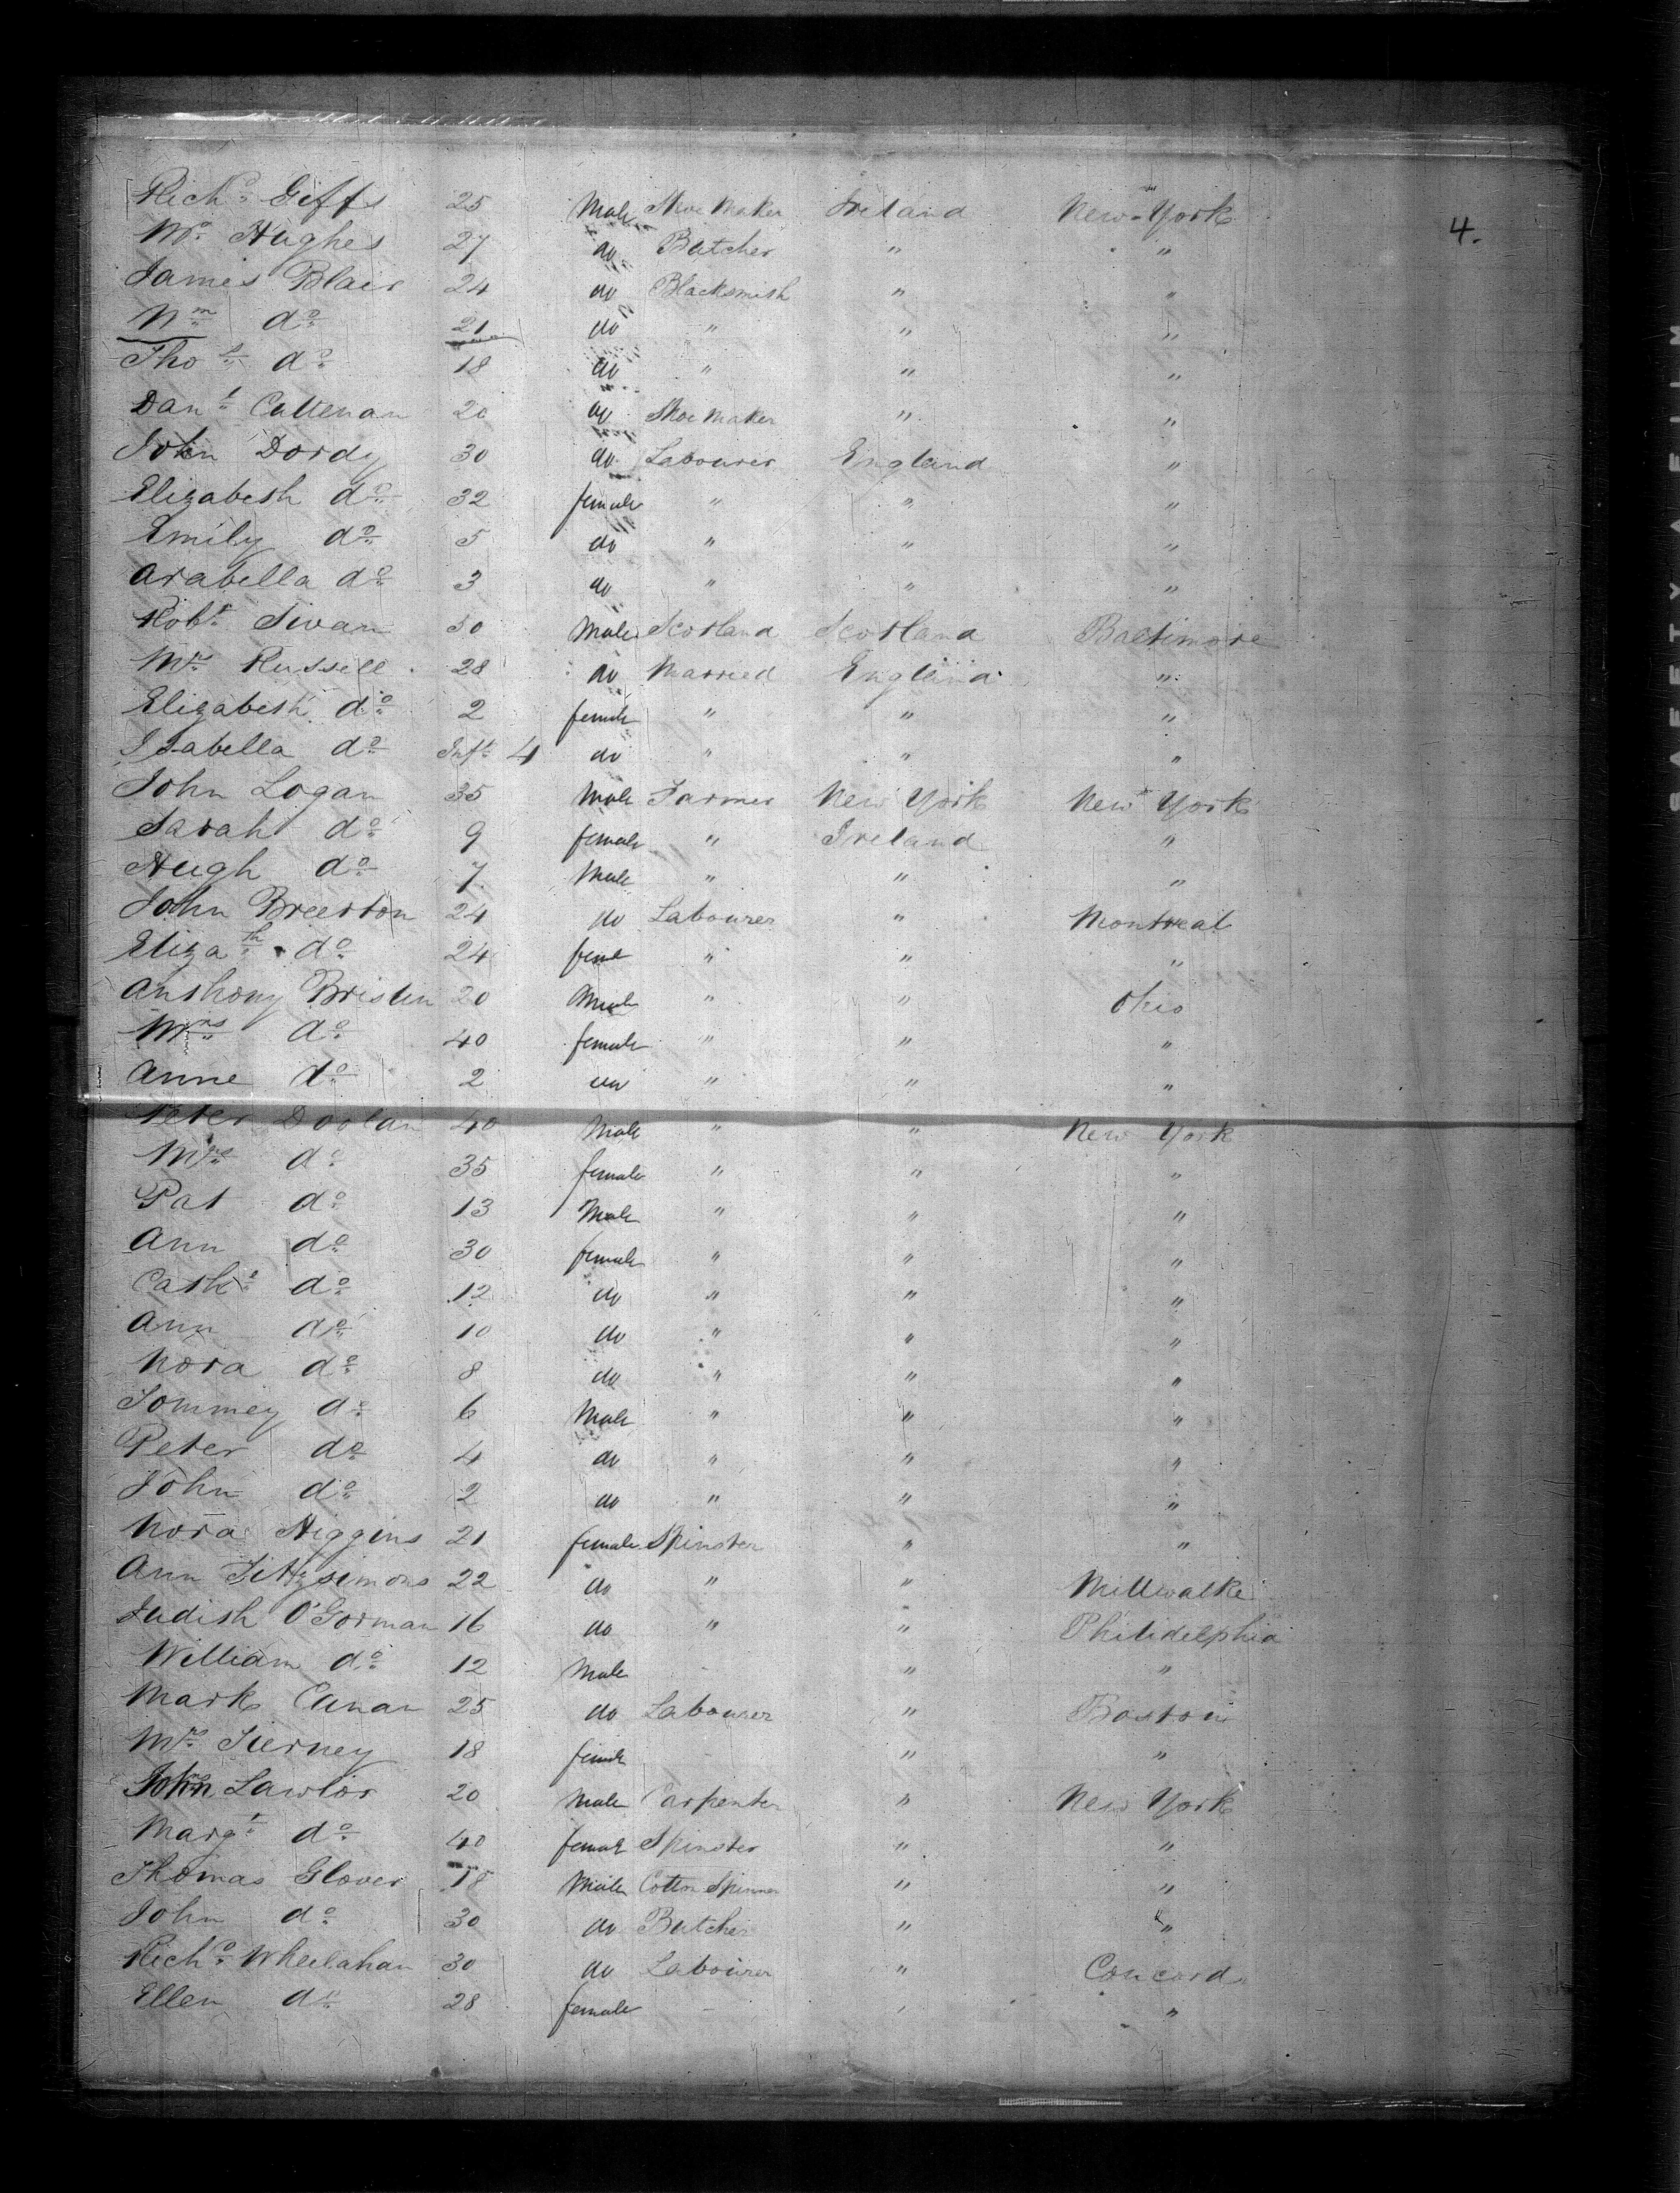 Richd Giffs 25 Male Shoe Maker Ireland New-York
4.
Mr Hughes 27 do Butcher " "
James Blair 24 do Blacksmith " "
Wm do 21 do " " "
Thos do 18 do " " "
Danl Cullenan 20 do Shoe Maker " "
John Dordy 30 do Labourer England "
Elizabeth do 32 female " " "
Emily do 5 do " " "
Arabella do 3 do " " "
Robt Swan 30 Male Scotland Scotland Baltimore
Mrs Russell 28 do Married England "
Elizabeth do 2 female " " "
Isabella do Inft 4 do " " "
John Logan 35 Male Farmer New York New York
Sarah do 9 female " Ireland "
Hugh do 7 Male " " "
John Breerton 24 do Labourer " Montreal
Elizath do 24 feml " " "
Anthony Brislin 20 Male " " Ohio
Mrs do 40 female " " "
Anne do 2 do " " "
Peter Doolan 40 Male " " New York
Mrs do 35 female " " "
Pat do 13 Male " " "
Ann do 30 female " " "
Cathe do 12 do " " "
Ann do 10 do " " "
Nora do 8 do " " "
Tommey do 6 Male " " "
Peter do 4 do " " "
John do 2 do " " "
Nora Higgins 21 female Spinster " "
Ann Fittzsimons 22 do " " Millwalke
Judith O'Gorman 16 do " " Philidelphia
William do 12 Male " "
Mark Canar 25 do Labourer " Boston
Mrs Tierney 18 female " "
John Lawlor 20 Male Carpenter " New York
Margt do 40 female Spinster " "
Thomas Glover 18 Male Cotton Spinner " "
John do 30 do Butcher " "
Richd Wheelahan 30 do Labourer " Concord
Ellen do 28 female - " "